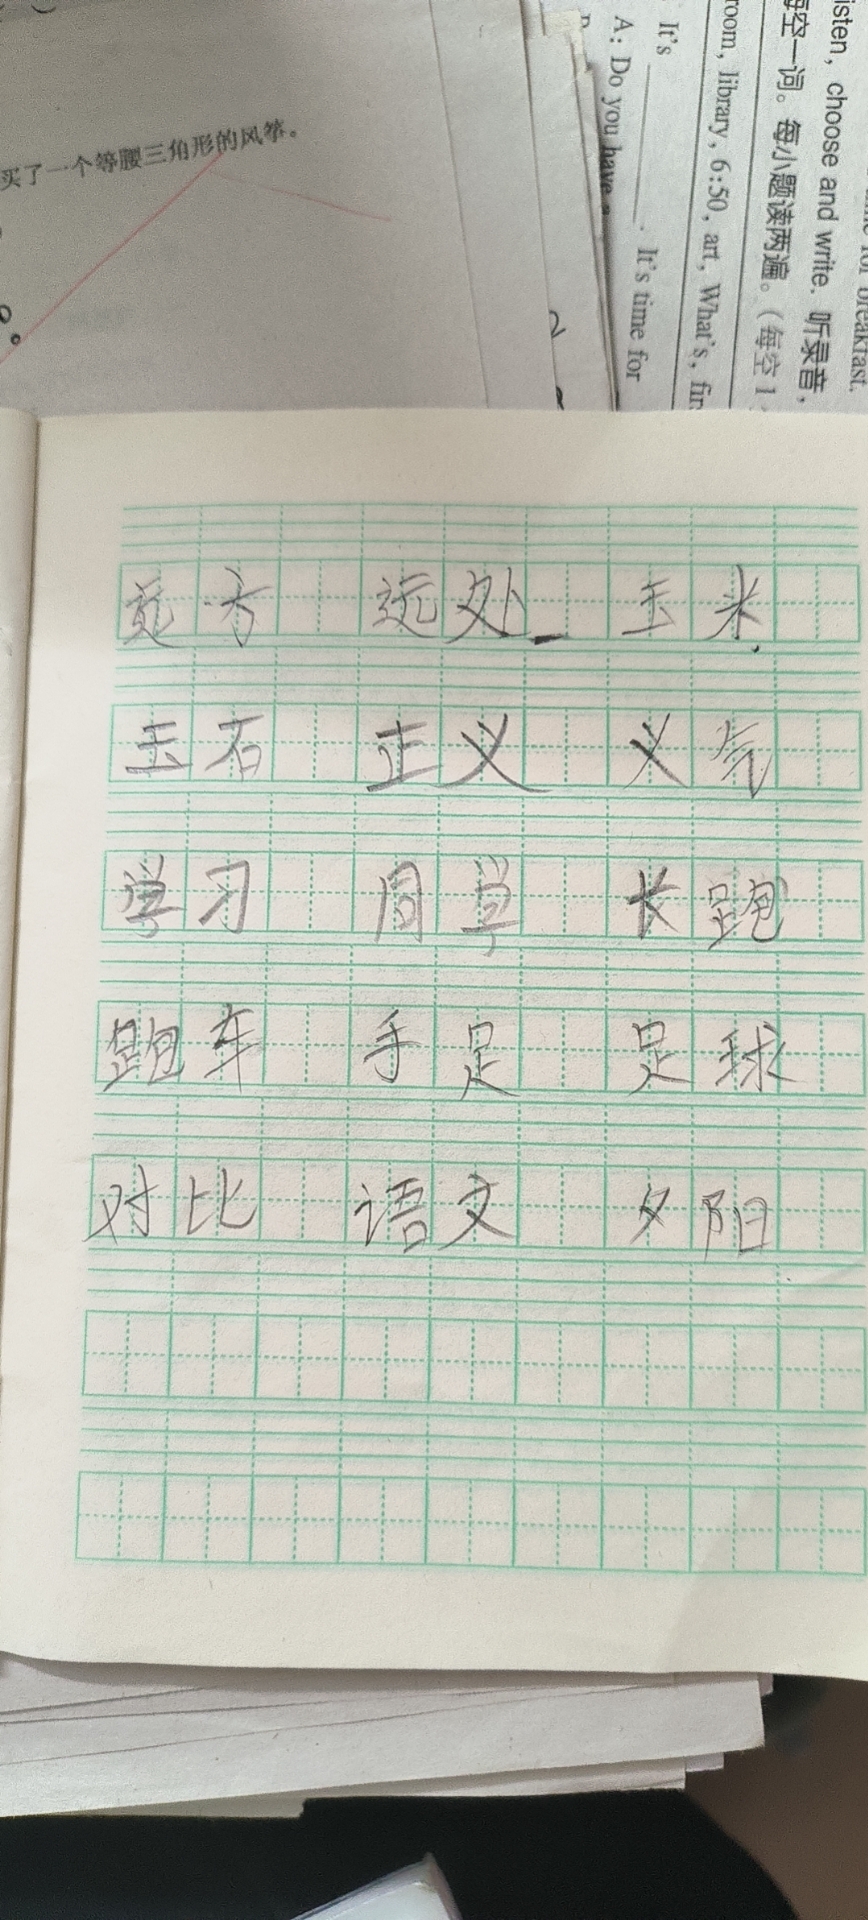 买了一个等腰三角形的风筝。
It's
A: Do you have
. It's time for
room, library, 6:50, art, What's, fir
每空一词。每小题读两遍。（每空1
listen, choose and write. 听录音，
for breakfast.
远方 远处 玉米
玉石 正义 义气
学习 同学 长跑
跑车 手足 足球
对比 语文 夕阳